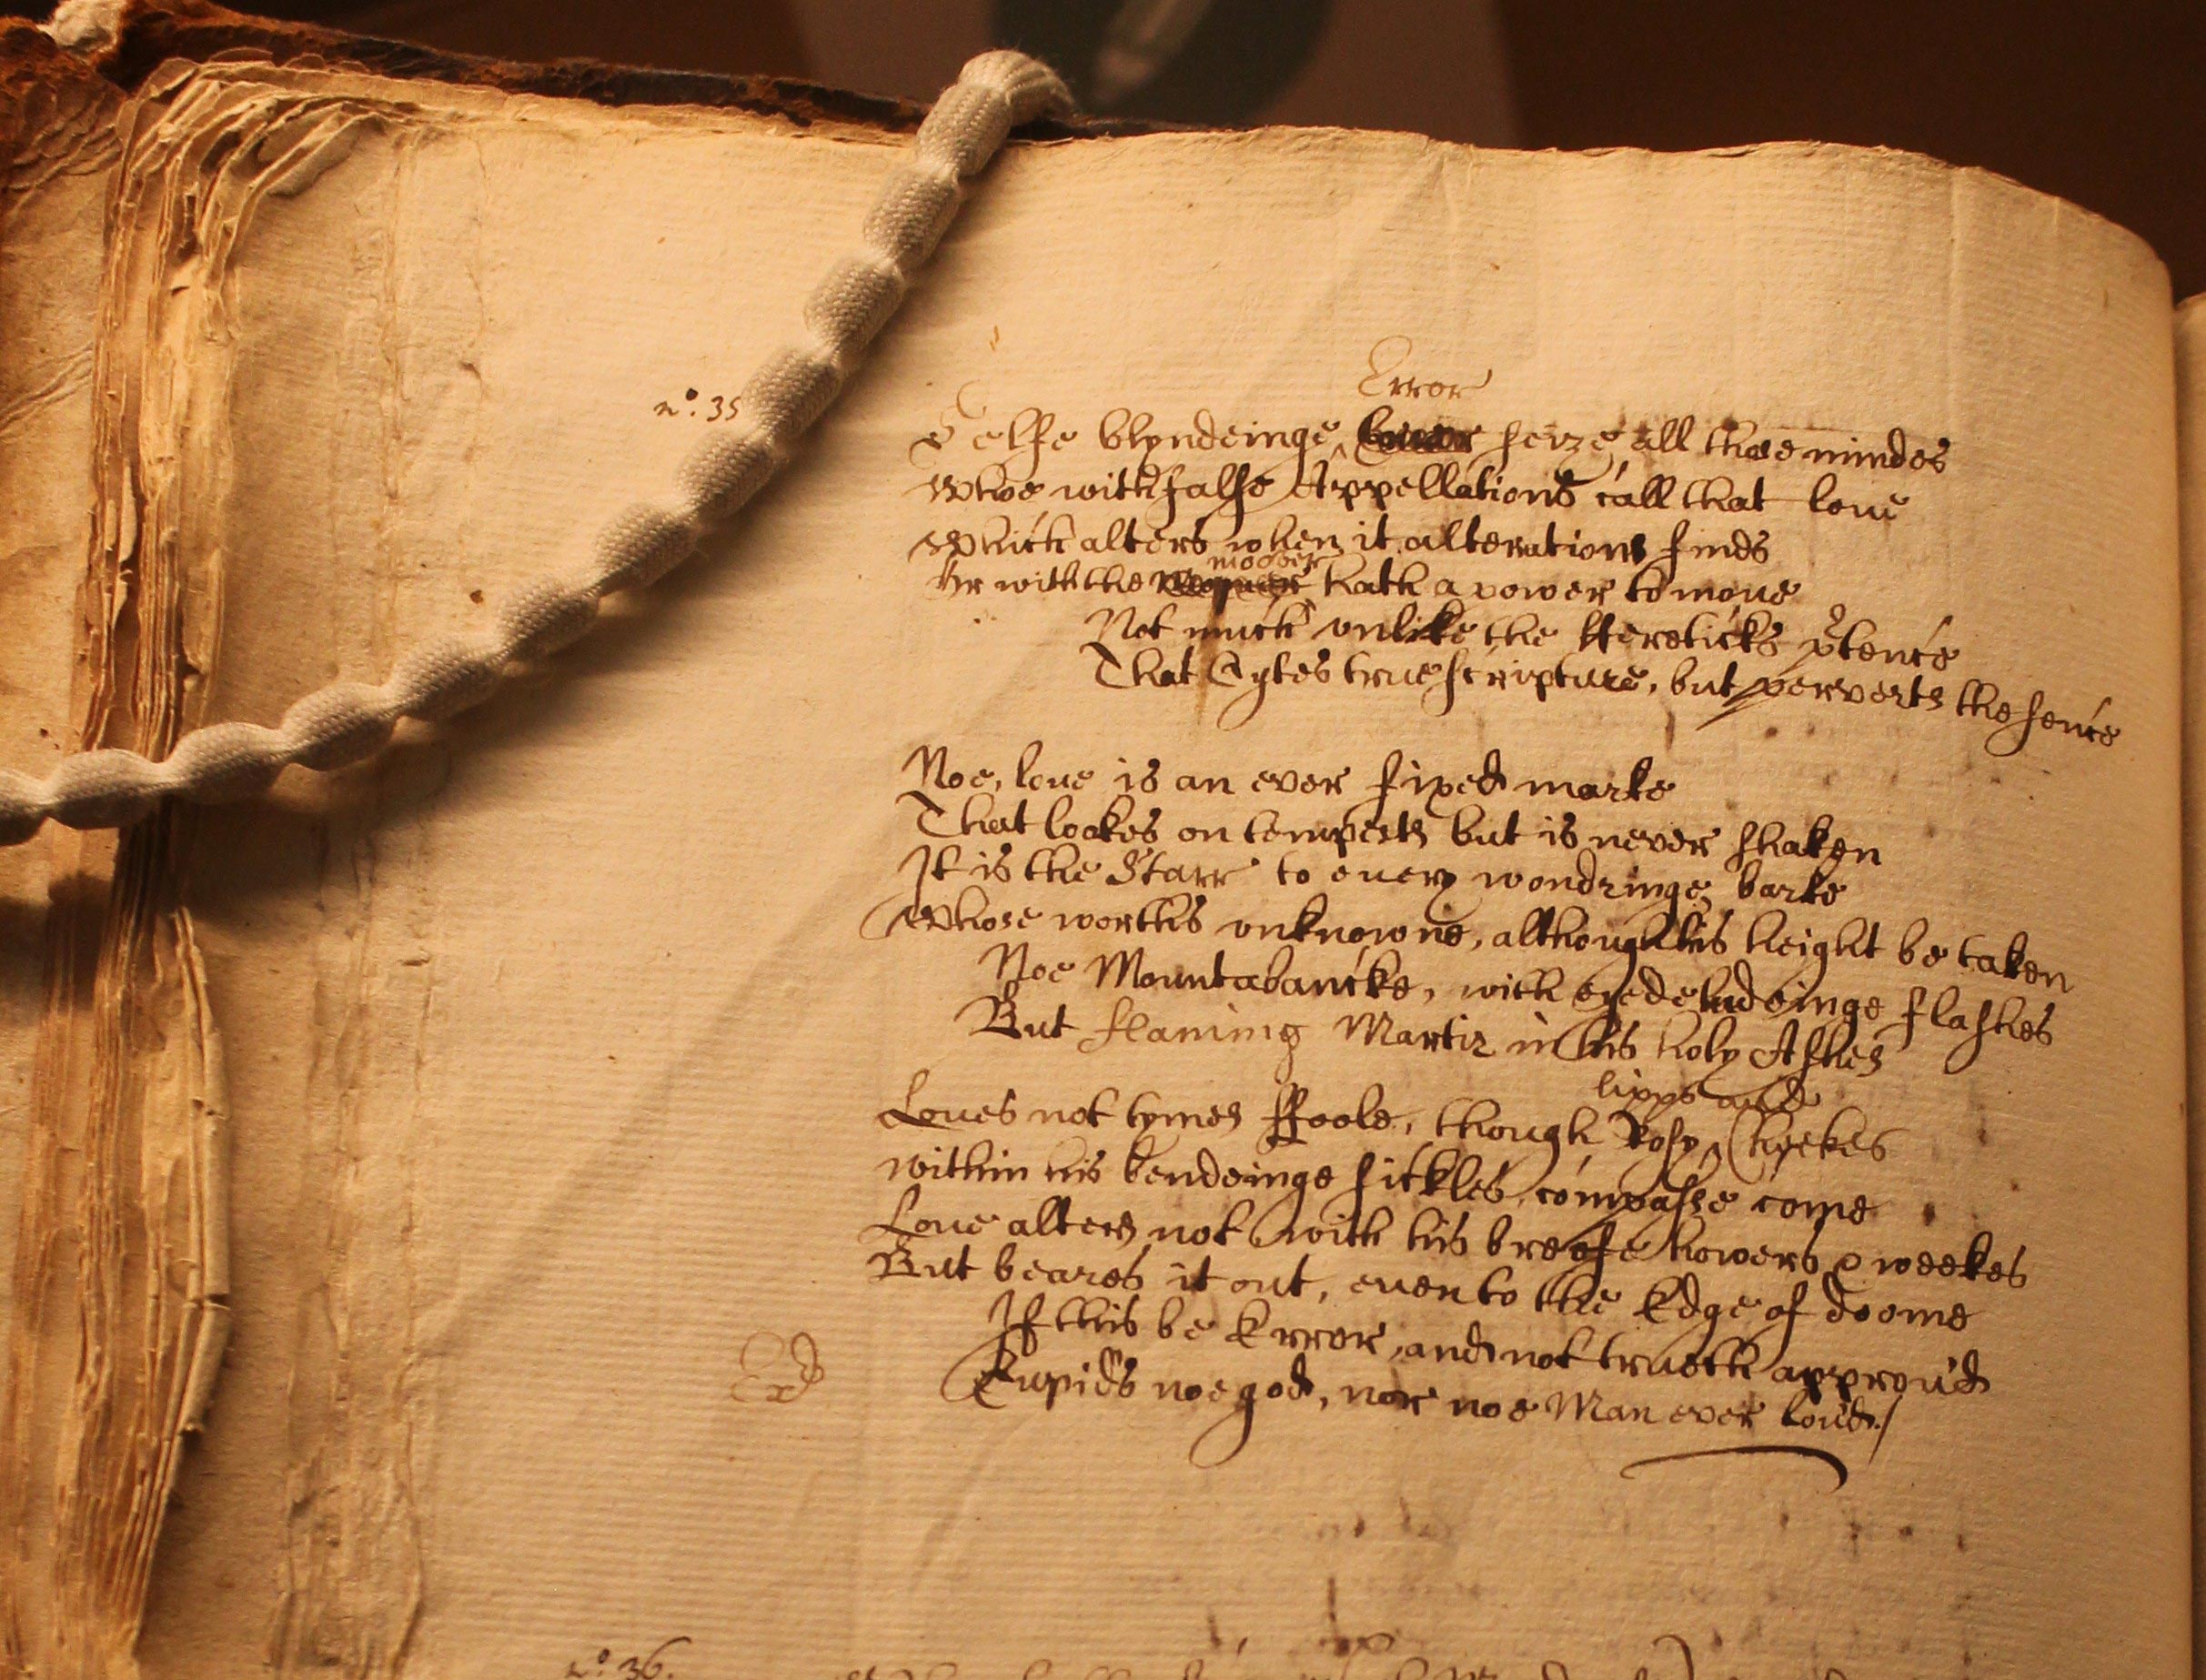 n.º 35
Error
Selfe blyndeinge seize all those mindes
Whoe with false Appellations call that loue
Which alters when it alterations finds
moover
Or with the hath a power to moue
Not much vnlike the Hereticks p̱tence
That Cytes true scripture, but perverts the sence
Noe, loue is an ever fixed marke
That lookes on tempests but is never shaken
It is the Starr to euery wondringe barke
Whose worths vnknowne, although his height be taken
Noe Mountabancke, with eyedeludeinge flashes
But flaming Martir in his holy Ashes
lipps and
Loues not tymes ffoole, though Rosy ‸ Cheekes
within his bendeinge sickles compasse come
Loue alters not with his breefe howers & weekes
But beares it out, euen to the Edge of doome
If this be Error, and not trueth approu'd
Cupids noe god, nor noe Man ever lou'd./
Exd
n.º 36.